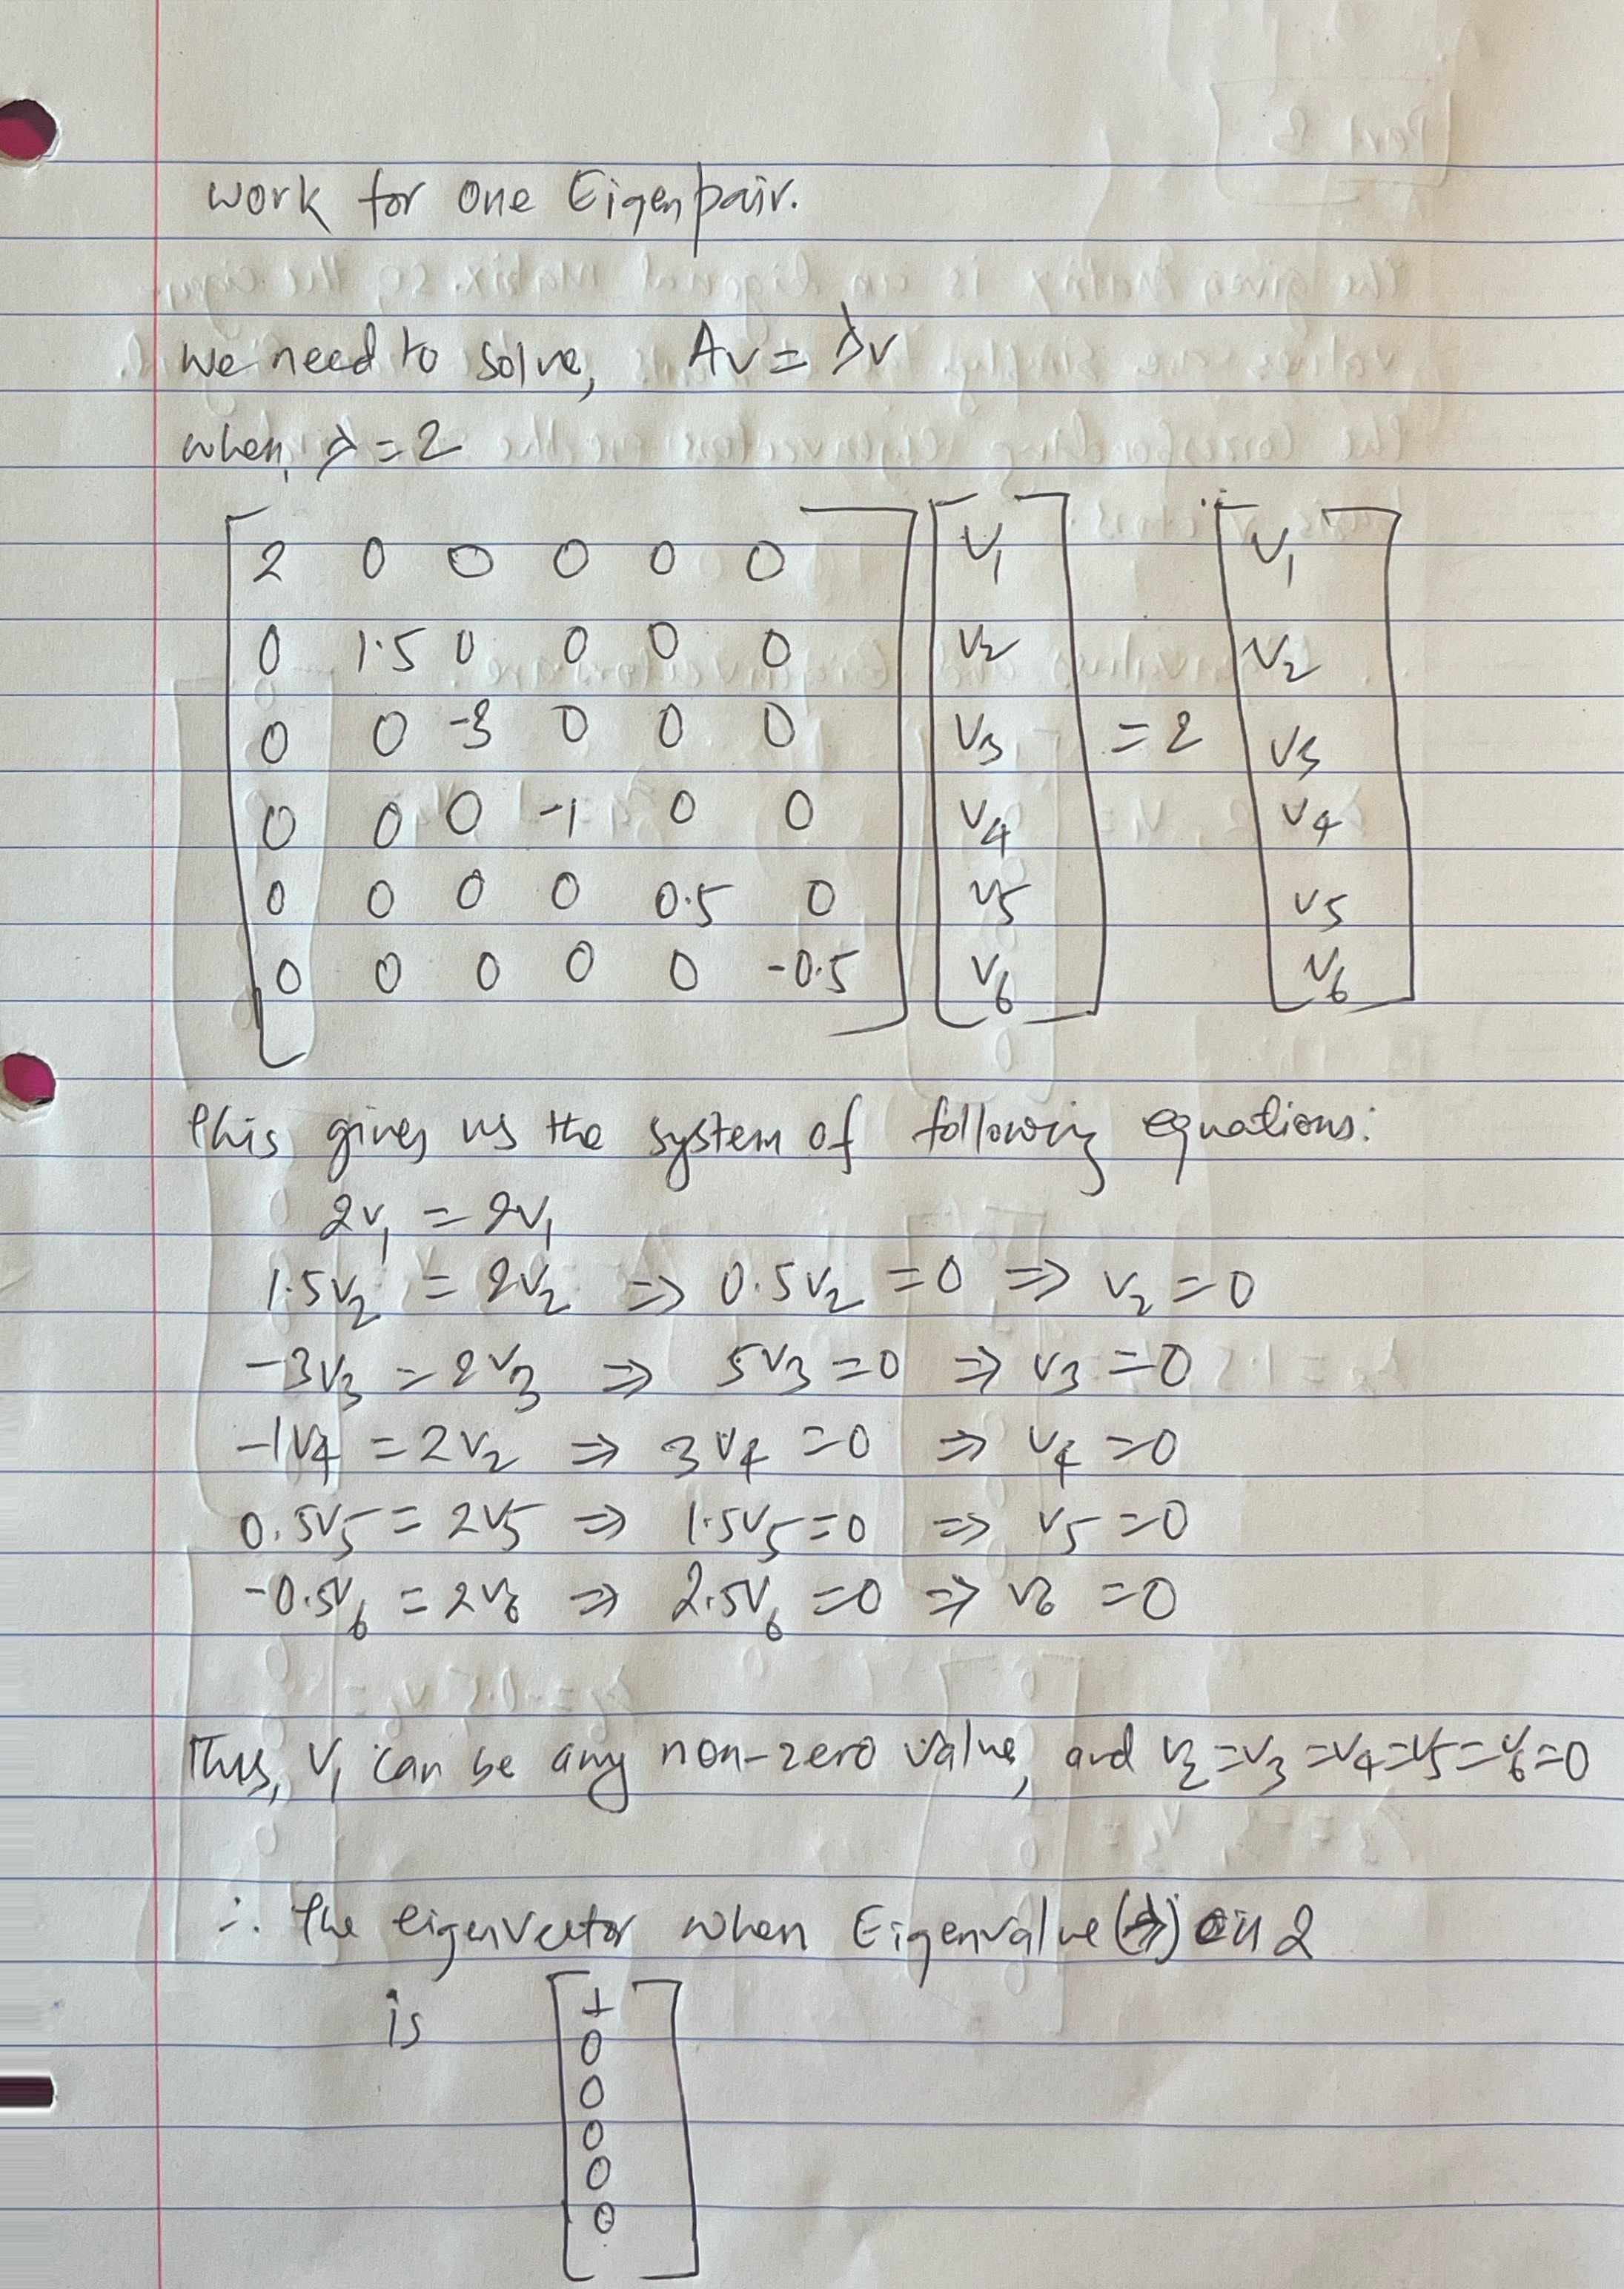 work for one Eigenpair.
we need to solve, Av = λv
when, λ = 2
[2 0 0 0 0 0] [v₁] [v₁]
[0 1.5 0 0 0 0] [v₂] [v₂]
[0 0 -3 0 0 0] [v₃] = 2 [v₃]
[0 0 0 -1 0 0] [v₄] [v₄]
[0 0 0 0 0.5 0] [v₅] [v₅]
[0 0 0 0 0 -0.5] [v₆] [v₆]
This gives us the system of following equations:
2v₁ = 2v₁
1.5v₂ = 2v₂ ⇒ 0.5v₂ = 0 ⇒ v₂ = 0
-3v₃ = 2v₃ ⇒ 5v₃ = 0 ⇒ v₃ = 0
-1v₄ = 2v₂ ⇒ 3v₄ = 0 ⇒ v₄ = 0
0.5v₅ = 2v₅ ⇒ 1.5v₅ = 0 ⇒ v₅ = 0
-0.5v₆ = 2v₆ ⇒ 2.5v₆ = 0 ⇒ v₆ = 0
Thus, v₁ can be any non-zero value, and v₂ = v₃ = v₄ = v₅ = v₆ = 0
∴ The eigenvector when Eigenvalue (λ) is 2
is [1
0
0
0
0
0]